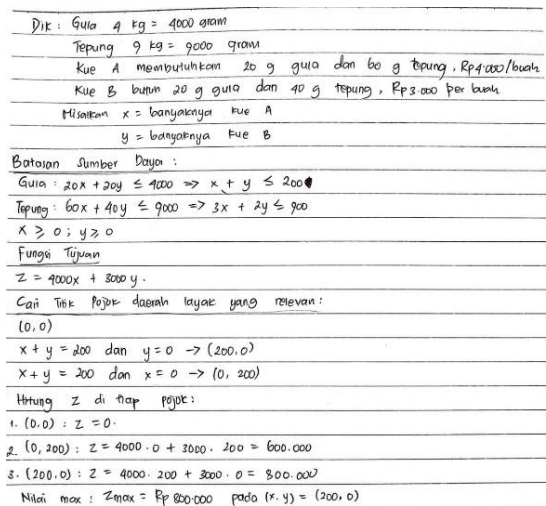 Dik : Gula 4 kg = 4000 gram
Tepung 9 kg = 9000 gram
Kue A membutuhkan 20 g gula dan 60 g tepung, Rp4.000/buah
Kue B butuh 20 g gula dan 40 g tepung, Rp3.000 per buah
Misalkan x = banyaknya kue A
y = banyaknya kue B
Batasan Sumber Daya :
Gula : 20x + 20y ≤ 4000 => x + y ≤ 200
Tepung : 60x + 40y ≤ 9000 => 3x + 2y ≤ 900
x ≥ 0 ; y ≥ 0
Fungsi Tujuan
Z = 4000x + 3000y.
Cari Titik Pojok daerah layak yang relevan :
(0,0)
x + y = 200 dan y = 0 → (200,0)
x + y = 200 dan x = 0 → (0, 200)
Hitung Z di tiap pojok :
1. (0.0) : Z = 0.
2. (0, 200) : Z = 4000 . 0 + 3000 . 200 = 600.000
3. (200.0) : Z = 4000. 200 + 3000 . 0 = 800.000
Nilai max : Zmax = Rp 800.000 pada (x. y) = (200, 0)